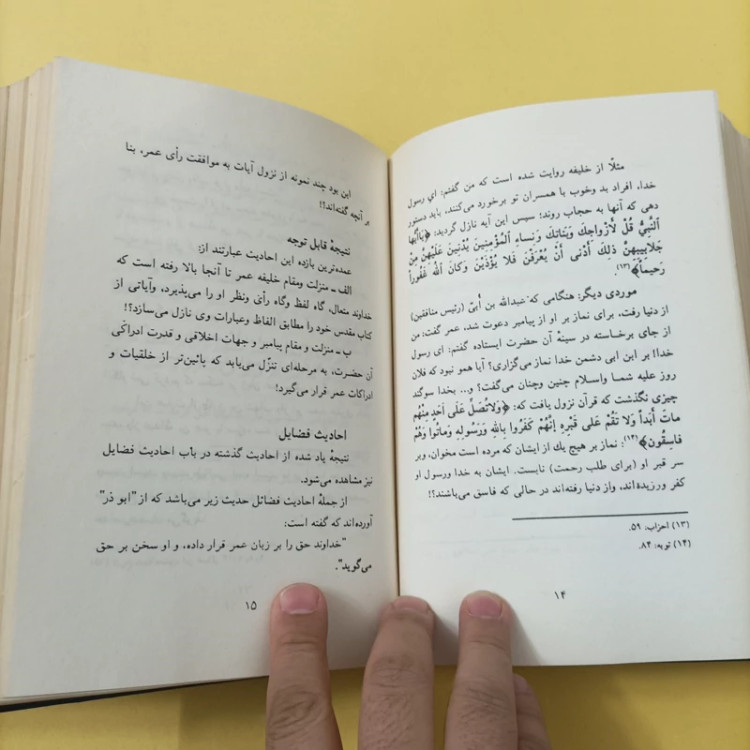 مثلًا از خلیفه روایت شده است که من گفتم: ای رسول
خدا، افراد بد وخوب با همسران تو برخورد می‌کنند، باید دستور
دهی که آنها به حجاب روند؛ سپس این آیه نازل گردید: ﴿یَاأَیُّها
النَّبِیُّ قُلْ لأَزْواجِكَ وَبَناتِكَ وَنِساءِ المُؤْمِنینَ یُدْنینَ عَلَیْهِنَّ مِنْ
جَلابِیبِهِنَّ ذلِكَ أَدْنی أَنْ یُعْرَفْنَ فَلا یُؤْذَیْنَ وَکانَ اللّٰهُ غَفُوراً
رَحیماً﴾(۱۳).
موردی دیگر: هنگامی که عبدالله بن أُبیّ (رئیس منافقین)
از دنیا رفت، برای نماز بر او از پیامبر دعوت شد، عمر گفت: من
از جای برخاسته در سینهٔ آن حضرت ایستاده گفتم: ای رسول
خدا! بر ابن ابی دشمن خدا نماز می‌گزاری؟ آیا همو نبود که فلان
روز علیه شما واسلام چنین وچنان می‌گفت؟ و... بخدا سوگند
چیزی نگذشت که قرآن نزول یافت که: ﴿وَلاتُصَلِّ عَلی أَحَدٍ مِنْهُمْ
ماتَ أَبَداً وَلا تَقُمْ عَلی قَبْرِهِ إِنَّهُمْ کَفَرُوا بِاللّٰهِ وَرَسُولِهِ وَماتُوا وَهُمْ
فاسِقُون﴾(۱۴): نماز بر هیچ یك از ایشان که مرده است مخوان، وبر
سر قبر او (برای طلب رحمت) نایست. ایشان به خدا ورسول او
کفر ورزیده‌اند، واز دنیا رفته‌اند در حالی که فاسق می‌باشند؟!
(۱۳) احزاب: ۵۹.
(۱۴) توبه: ۸۴.
۱۴
این بود چند نمونه از نزول آیات به موافقت رأی عمر، بنا
بر آنچه گفته‌اند!!
نتیجهٔ قابل توجه
عمده‌ترین بازده این احادیث عبارتند از:
الف ـ منزلت ومقام خلیفه عمر تا آنجا بالا رفته است که
خداوند متعال، گاه لفظ وگاه رأی ونظر او را می‌پذیرد، وآیاتی از
کتاب مقدس خود را مطابق الفاظ وعبارات وی نازل می‌سازد؟!
ب ـ منزلت و مقام پیامبر و جهات اخلاقی و قدرت ادراکی
آن حضرت، به مرحله‌ای تنزّل می‌یابد که پائین‌تر از خلقیات و
ادراکات عمر قرار می‌گیرد!
احادیث فضایل
نتیجهٔ یاد شده از احادیث گذشته در باب احادیث فضایل
نیز مشاهده می‌شود.
از جملهٔ احادیث فضائل حدیث زیر می‌باشد که از "ابو ذر"
آورده‌اند که گفته است:
"خداوند حق را بر زبان عمر قرار داده، و او سخن بر حق
می‌گوید".
۱۵